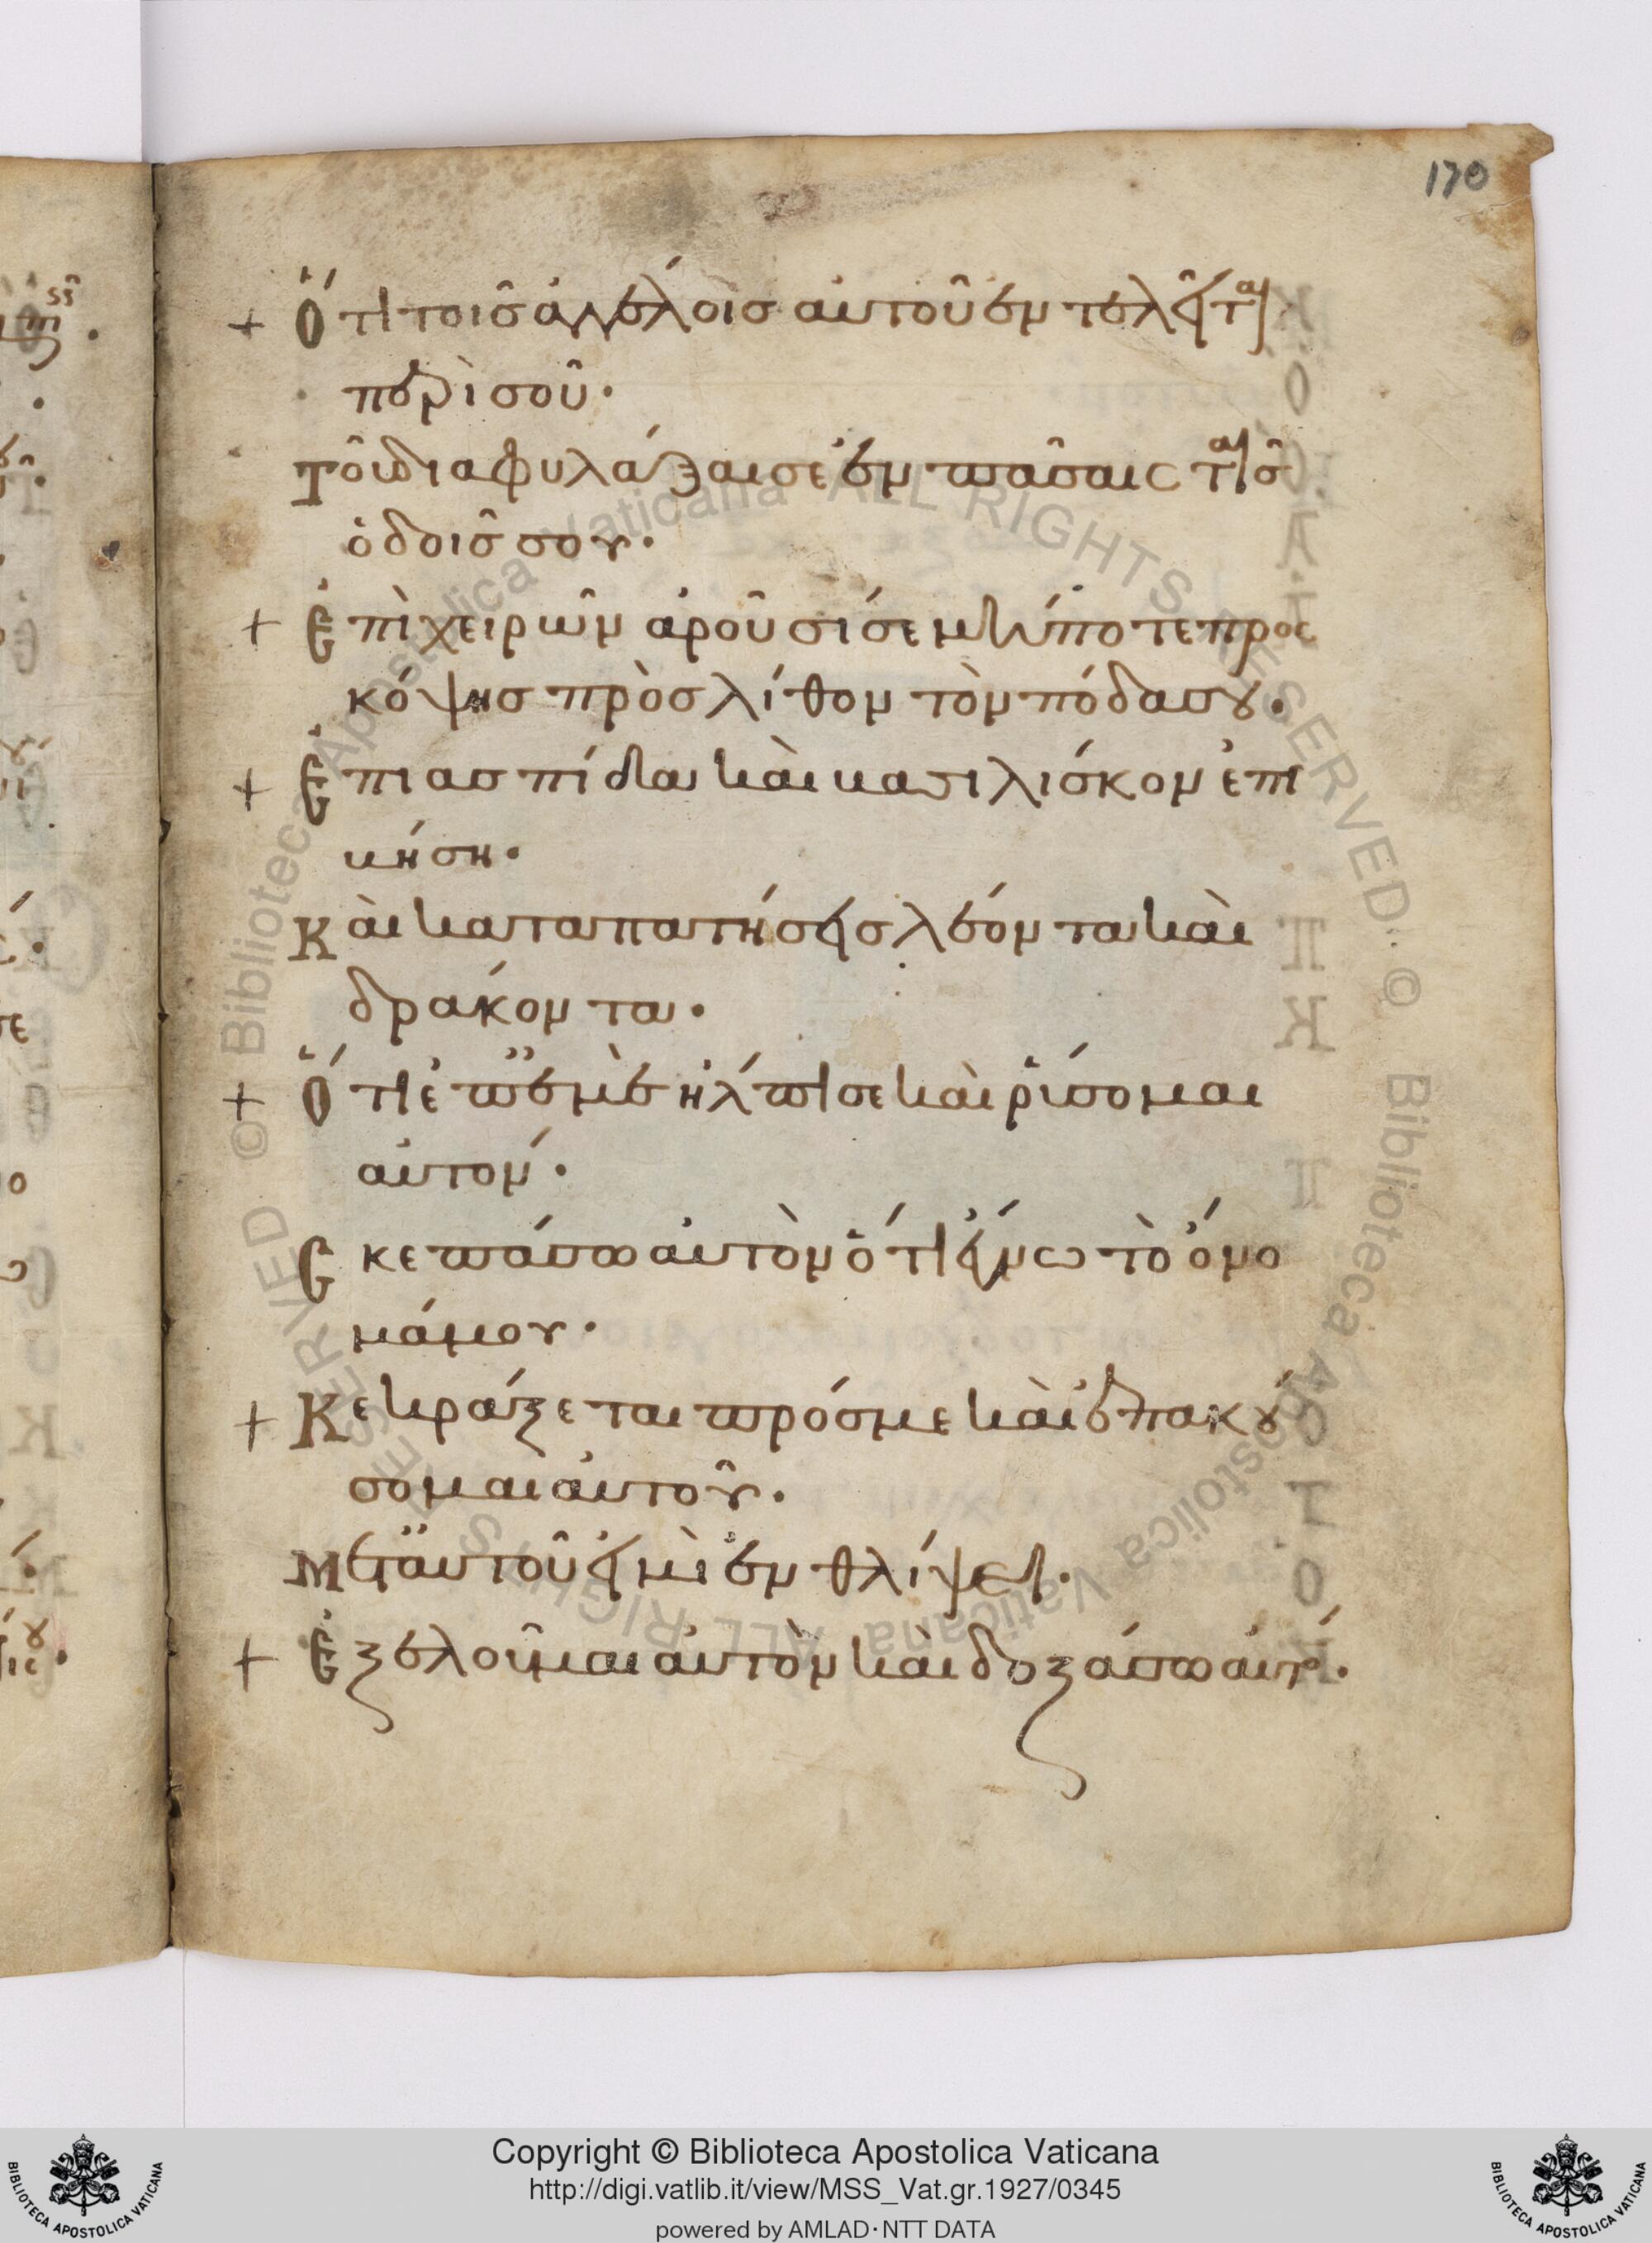 170
+ Ὅτι τοῖς ἀγγέλοις αὐτοῦ ἐντελεῖται
περὶ σοῦ·
Τοῦ διαφυλάξαι σε ἐν πάσαις ταῖς
ὁδοῖς σου·
+ Ἐπὶ χειρῶν ἀροῦσί σε μήποτε προς
κόψης πρὸς λίθον τὸν πόδα σου·
+ Ἐπι ασπίδα καὶ βασιλίσκον ἐπι
βήση·
Καὶ καταπατήσεις λέοντα καὶ
δράκοντα·
+ Ὅτι ἐπ ἐμὲ ἤλπισε καὶ ῥύσομαι
αὐτόν·
Σκεπάσω αὐτὸν ὅτι ἔγνω τὸ ὄνο
μά μου·
+ Κεκράξεται πρός με καὶ ἐπακού
σομαι αὐτοῦ·
Μετ αὐτοῦ εἰμὶ ἐν θλίψει·
+ Ἐξελοῦμαι αὐτὸν καὶ δοξάσω αὐτόν·
Copyright © Biblioteca Apostolica Vaticana
http://digi.vatlib.it/view/MSS_Vat.gr.1927/0345
powered by AMLAD·NTT DATA
BIBLIOTECA APOSTOLICA VATICANA
BIBLIOTECA APOSTOLICA VATICANA
© Biblioteca Apostolica Vaticana ALL RIGHTS RESERVED
© Biblioteca Apostolica Vaticana ALL RIGHTS RESERVED